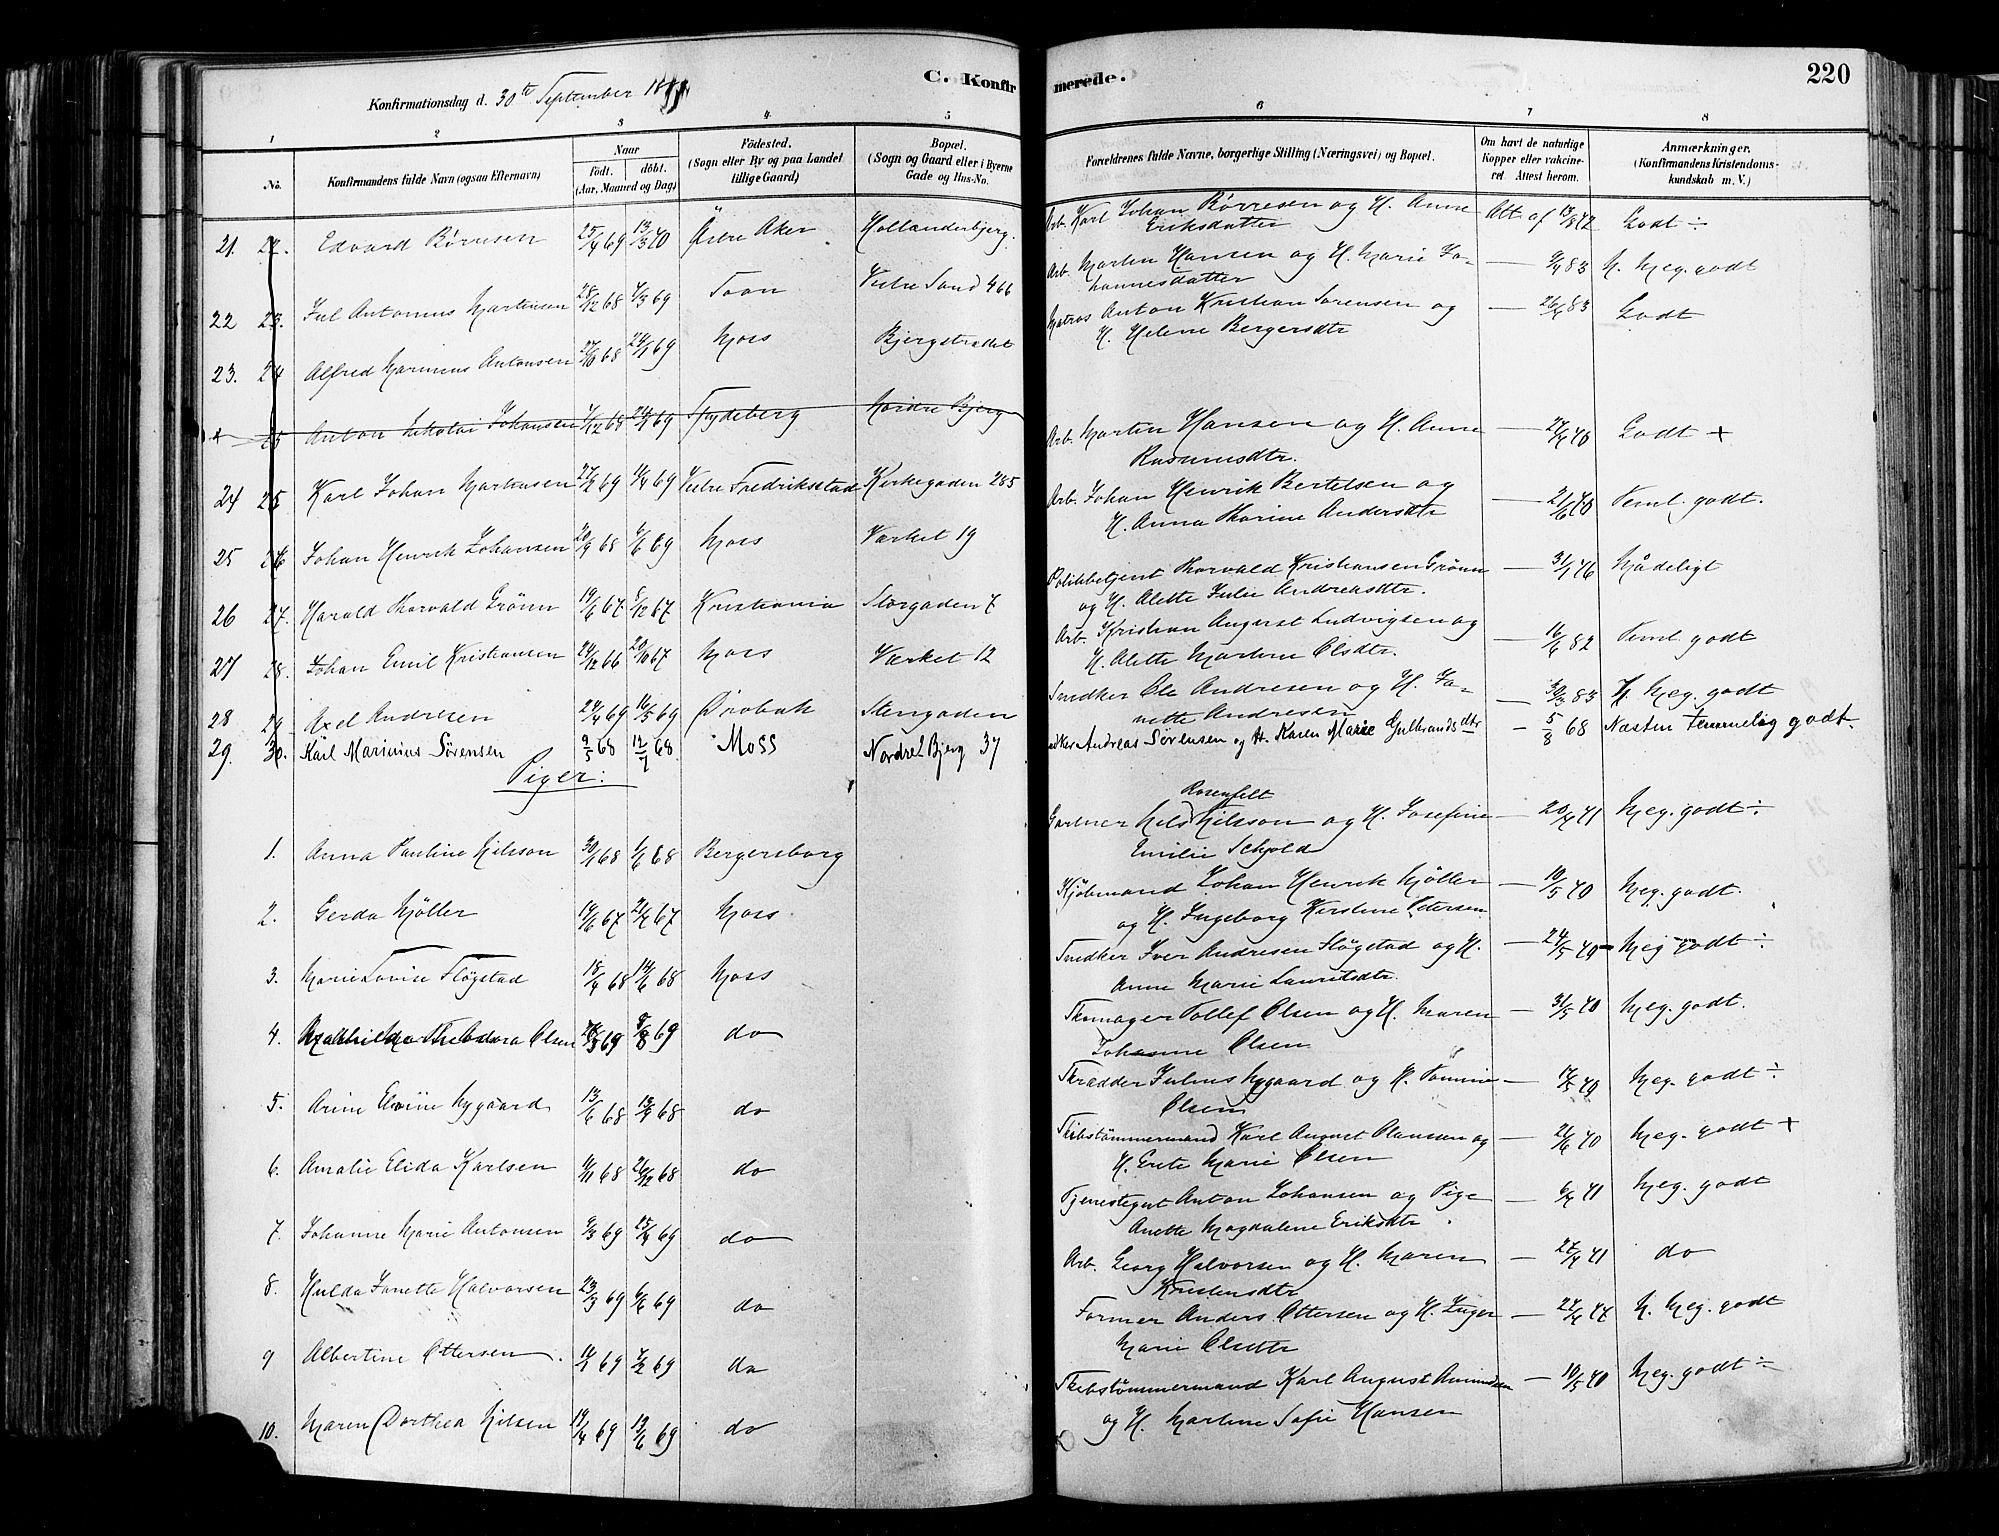 C. Konfirmerede.
220
Konfirmationsdag d. 30te September 18
1 2 3 4 5 6 7 8
No. Konfirmandens fulde Navn (ogsaa Efternavn) Naar født. døbt. (Aar, Maaned og Dag) Födested. (Sogn eller By og paa Landet tillige Gaard) Bopæl. (Sogn og Gaard eller i Byerne Gade og Hus-No. Forældrenes fulde Navne, borgerlige Stilling (Næringsvei) og Bopæl. Om havt de naturlige Kopper eller vakcineret. Attest herom. Anmærkninger. (Konfirmandens Kristendomskundskab m. V.)
21. 22. Edvard Börresen 25/4 69 13/3 70 Østre Aker Hollænderbjerg. Arb. Karl Johan Börresen og H. Anne Eriksdatter Att. af 13/8 72 Godt ÷
22 23. Jul Antonius Martinsen 28/12 68 7/3 69 Soon Vestre Sand 466 Arb. Martin Hansen og H. Marie Johannesdatter — 9/4 83 N. Meg. godt
23. 24 Alfred Marinius Antonsen 27/10 68 24/1 69 Moss Bjergstrædet Matros Anton Kristian Sorensen og H. Helene Bergersdtr — 26/4 83 Godt
25 Anton Nikolai Johansen 7/12 68 69 Spydeberg Nordre Bjerg
24 25 Karl Johan Martinsen 27/2 69 11/4 69 Vestre Fredriksstad Kirkegaden 285 Arb. Martin Hansen og H. Anne Rasmusdtr. — 27/4 70 Godt +
25 26 Johan Henrik Johansen 20/9 68 6/6 69 Moss Værket 19 Arb. Johan Henrik Bertelsen og H. Anna Karine Andersdtr — 21/6 70 Teml. godt.
26 27. Harald Thorvald Grönn 19/6 67 8/12 67 Kristiania Storgaden 7 Politibetjent Thorvald Kristiansen Grönn og H. Alette Julie Andreasdtr. — 31/1 76 Mådeligt
27 28. Johan Emil Kristiansen 24/12 66 20/10 67 Moss Værket 12 Arb. Kristian August Ludvigsen og H. Alette Martine Olsdtr. — 16/6 82 Teml. godt
28 29 Axel Andresen 24/4 69 16/5 69 Dröbak Stengaden Snedker Ole Andresen og H. Janette Andresen — 30/3 83 N. Meg. godt
29. 30. Karl Marinius Sørensen 9/5 68 12/7 68. Moss Nordre Bjerg 37 Andreas Sørensen og H. Karen Marie Gulbrandsdtr — 5/8 68 Næsten temmelig godt.
Piger:
1. Anna Pauline Nilsson 30/1 68 1/6 68 Bergersborg Gartner Nils Rosenfelt Nilsson og H. Josefine Emilie Schold — 20/4 71 Meg. godt ÷
2. Gerda Møller 14/6 67 21/7 67 Moss. Kjöbmand Johan Henrik Møller og H. Ingeborg Kirstine Petersen — 10/5 70 Meg. godt.
3. Marie Lovise Fløgstad 18/4 68 14/6 68 Moss Snedker Iver Andresen Fløgstad og H. Anne Marie Lauritsdtr. — 24/5 70 — Meg godt ÷
4. Mathilda Theodora Olsen 69 8/8 69 do Skomager Tollef Olsen og H. Maren Johanne Olsen — 31/5 70 Meg. godt.
5. Nygaard 13/6 68 13/9 68 do Skrædder Julius Nygaard og H. Olsen — 17/5 70 Meg. godt ÷
6. Amalie Elida Karlsen 11/11 68 26/12 68 do Skibstømmermand Karl August Olausen og H. Grete Marie Olsen — 21/6 70 Meg. godt +
7. Johanne Marie Antonsen 9/3 69 25/4 69 do Tjenestegut Anton Johansen og Pige Anette Magdalene Eriksdtr. — 6/4 71 Meg. godt
8. Hulda Janette Halvorsen 23/3 69 6/6 69 do Arb. Georg Halvorsen og H. Maren Kristensdtr — 27/4 71 do
9 Albertine Ottersen. 11/1 69 7/2 69 do Former Anders Ottersen og H. Inger Marie Olsdtr — 27/4 77 N. Meg. godt
10. Maren Dorthea Nilsen 19/4 69 13/6 69 do Skibstømmermand Karl August Amundsen og H. Martine Sofie Hansen — 10/5 70 Meg. godt ÷